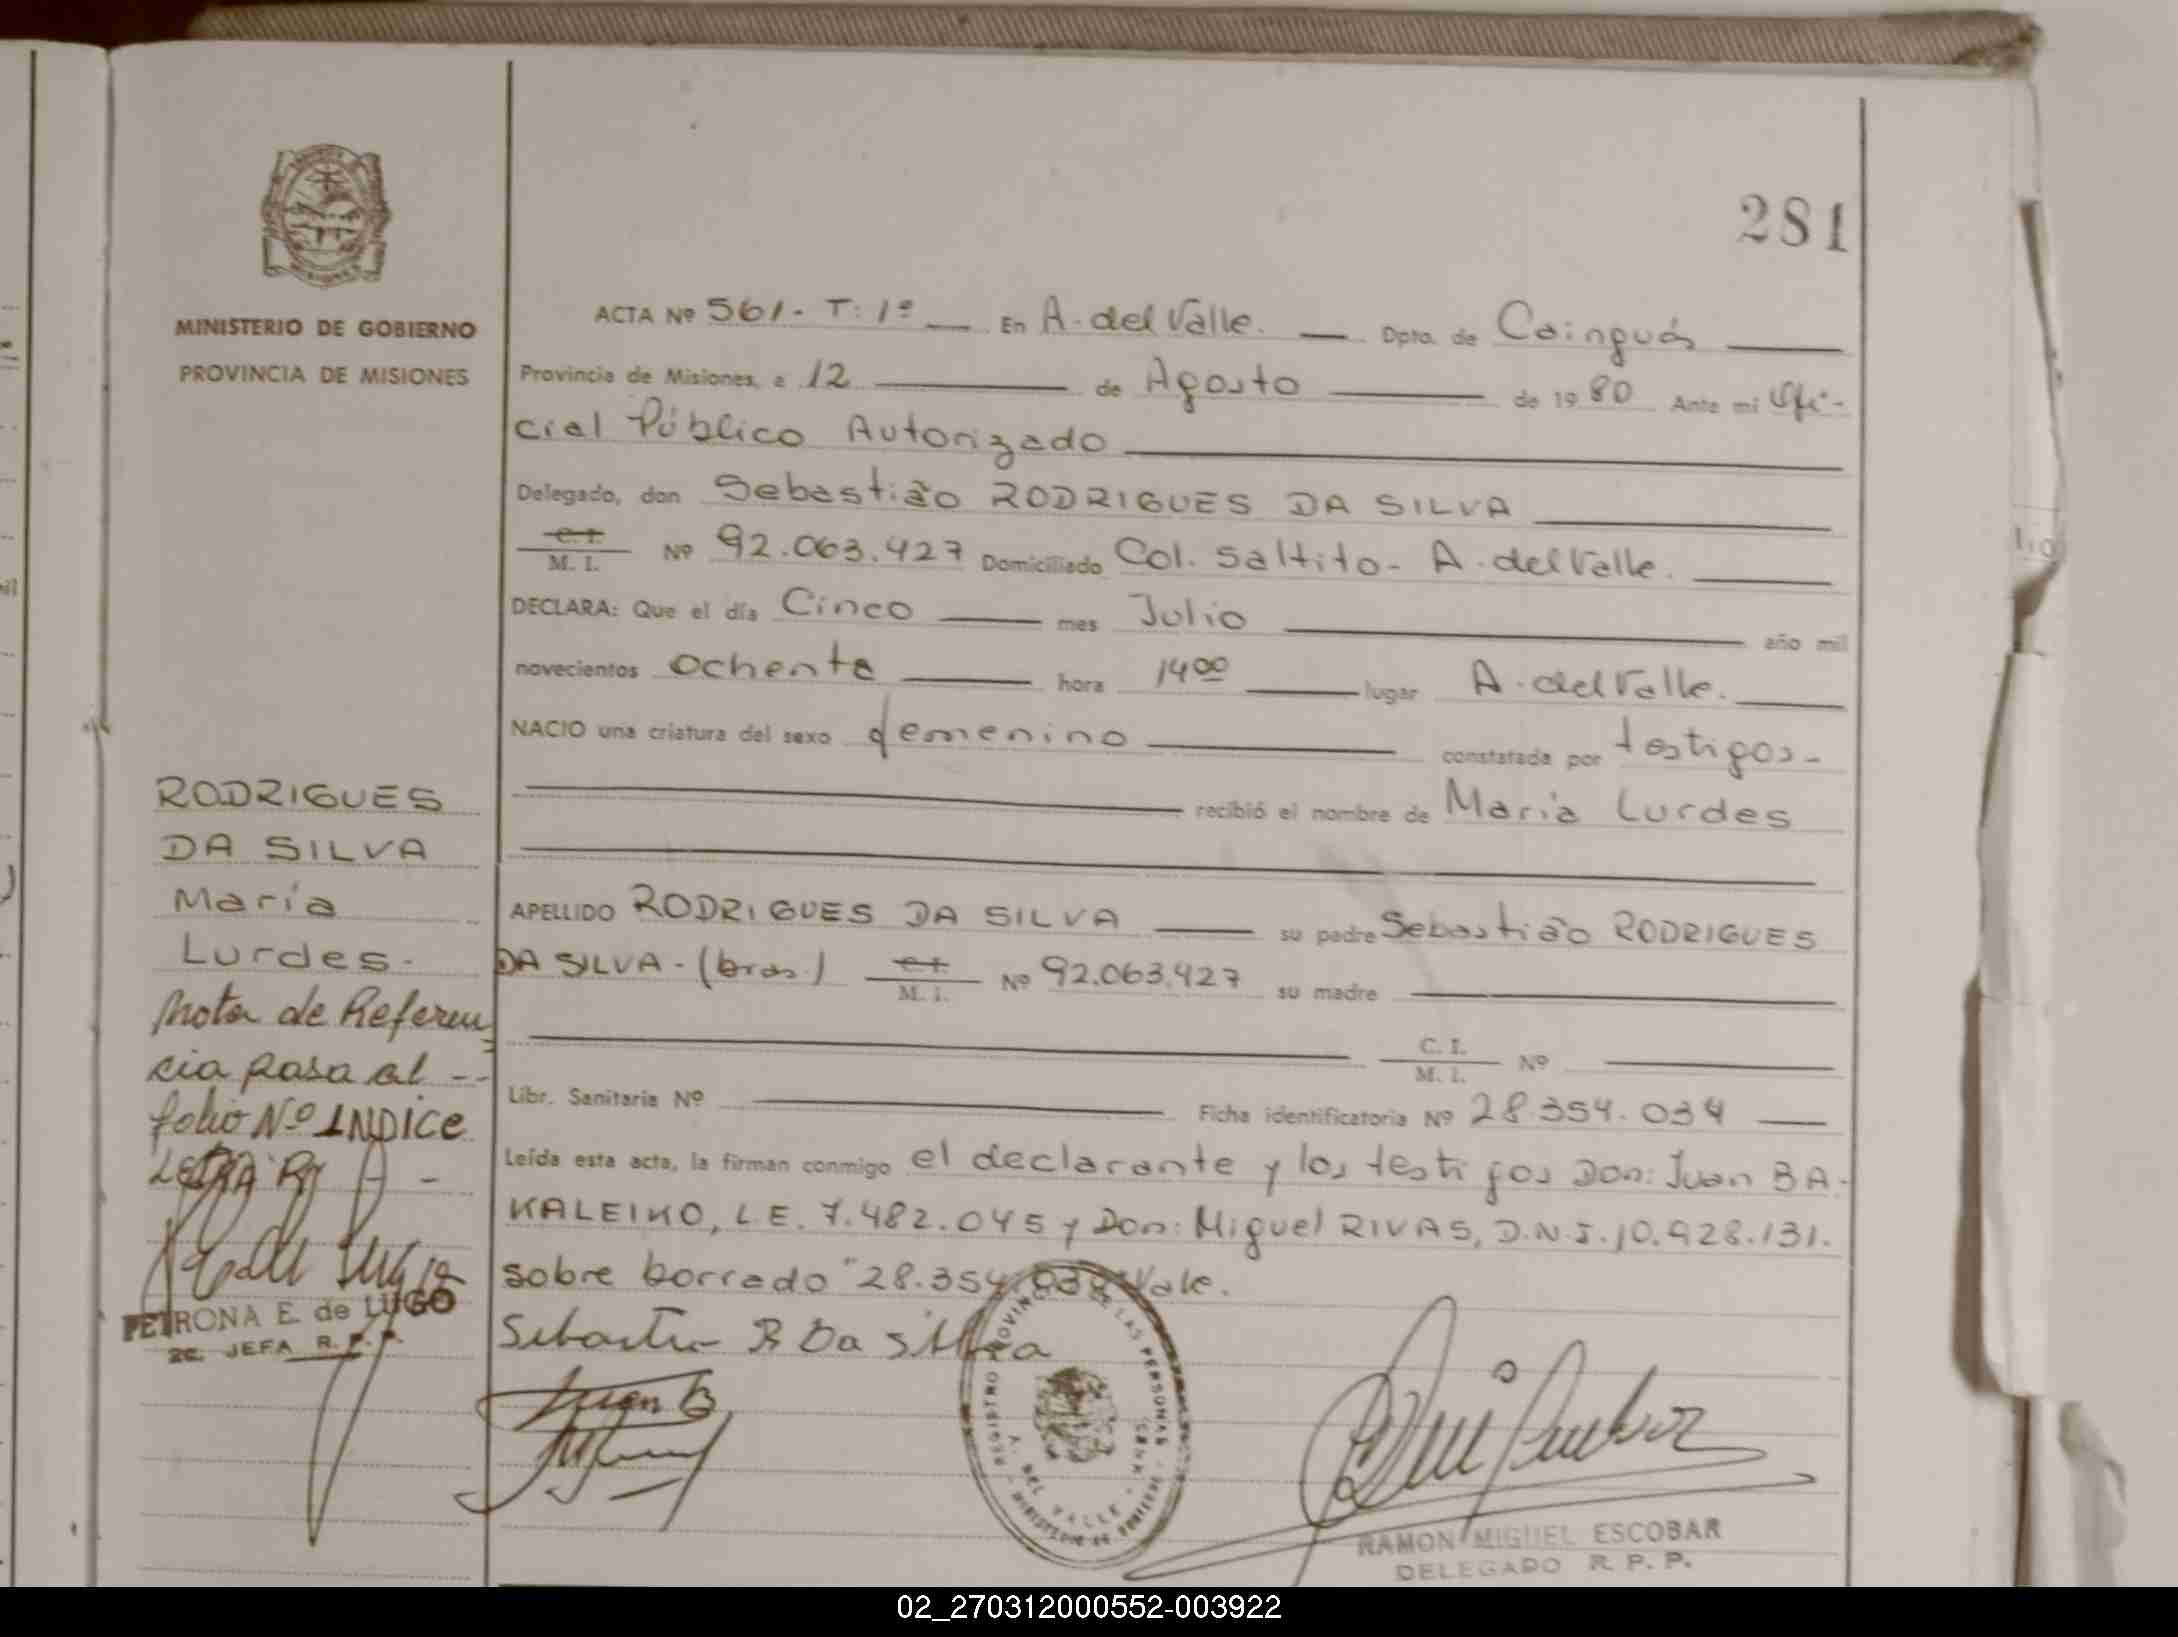 281
MINISTERIO DE GOBIERNO
PROVINCIA DE MISIONES
ACTA Nº 561- T: 1º — En A. del Valle. — Dpto. de Cainguás
Provincia de Misiones, a 12 de Agosto de 1980 Ante mi Ofi-
cial Público Autorizado
Delegado, don Sebastião RODRIGUES DA SILVA
C. I. / M. I. Nº 92.063.427 Domiciliado Col. Saltito - A. del Valle.
DECLARA: Que el día Cinco mes Julio año mil
novecientos ochenta hora 14⁰⁰ lugar A. del Valle.
NACIO una criatura del sexo femenino constatada por testigos-
recibió el nombre de María Lurdes
APELLIDO RODRIGUES DA SILVA su padre Sebastião RODRIGUES
DA SILVA - (bras.) C. I. / M. I. Nº 92.063.427 su madre
C. I. / M. I. Nº
Libr. Sanitaria Nº Ficha identificatoria Nº 28.354.034
Leída esta acta, la firman conmigo el declarante y los testigos Don: Juan BA-
KALEIKO, L.E. 7.482.045 y Don: Miguel RIVAS, D.N.I. 10.928.131.
sobre borrado "28.354.034" Vale.
RODRIGUES
DA SILVA
María
Lurdes-
Nota de Referen
cia pasa al --
folio Nº INDICE
LETRA
PETRONA E. de LUGO
2a. JEFA R. P. P.
Sebastião R Da Silva
Juan B
REGISTRO PROVINCIAL DE LAS PERSONAS
A. DEL VALLE
RAMON MIGUEL ESCOBAR
DELEGADO R. P. P.
02_270312000552-003922